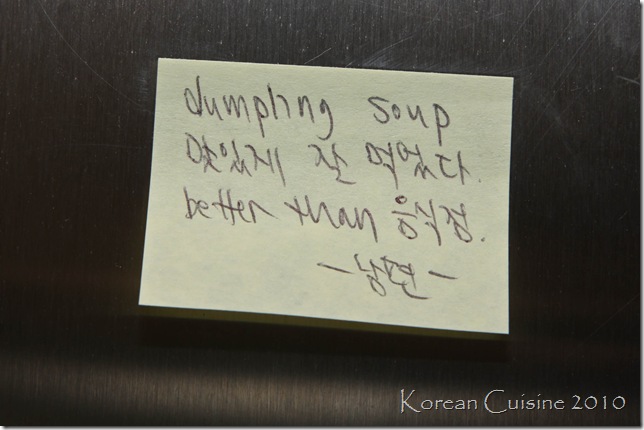 dumpling soup
맛있게 잘 먹었다.
better than 음식점.
-남편-
Korean Cuisine 2010